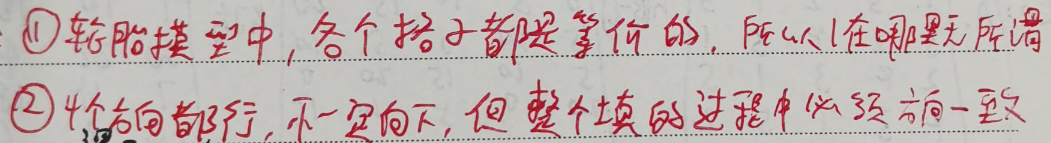 ①轮胎模型中,各个格子都是等价的,所以1在哪里无所谓
②4个方向都行,不一定向下,但整个填的过程中必须方向一致